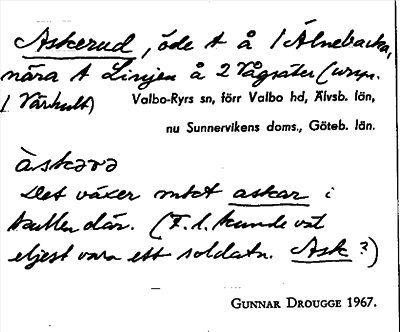 Askerud, öde t å 1 Älnebacka,
nära t Linjen å 2 Vågsäter (urspr.
1 Vårhult)
Valbo-Ryrs sn, förr Valbo hd, Älvsb. län,
nu Sunnervikens doms., Göteb. län.
àskərə
Det växer mkt askar i
kullen där. (F. l. kunde väl
eljest vara ett soldatn. Ask?)
GUNNAR DROUGGE 1967.